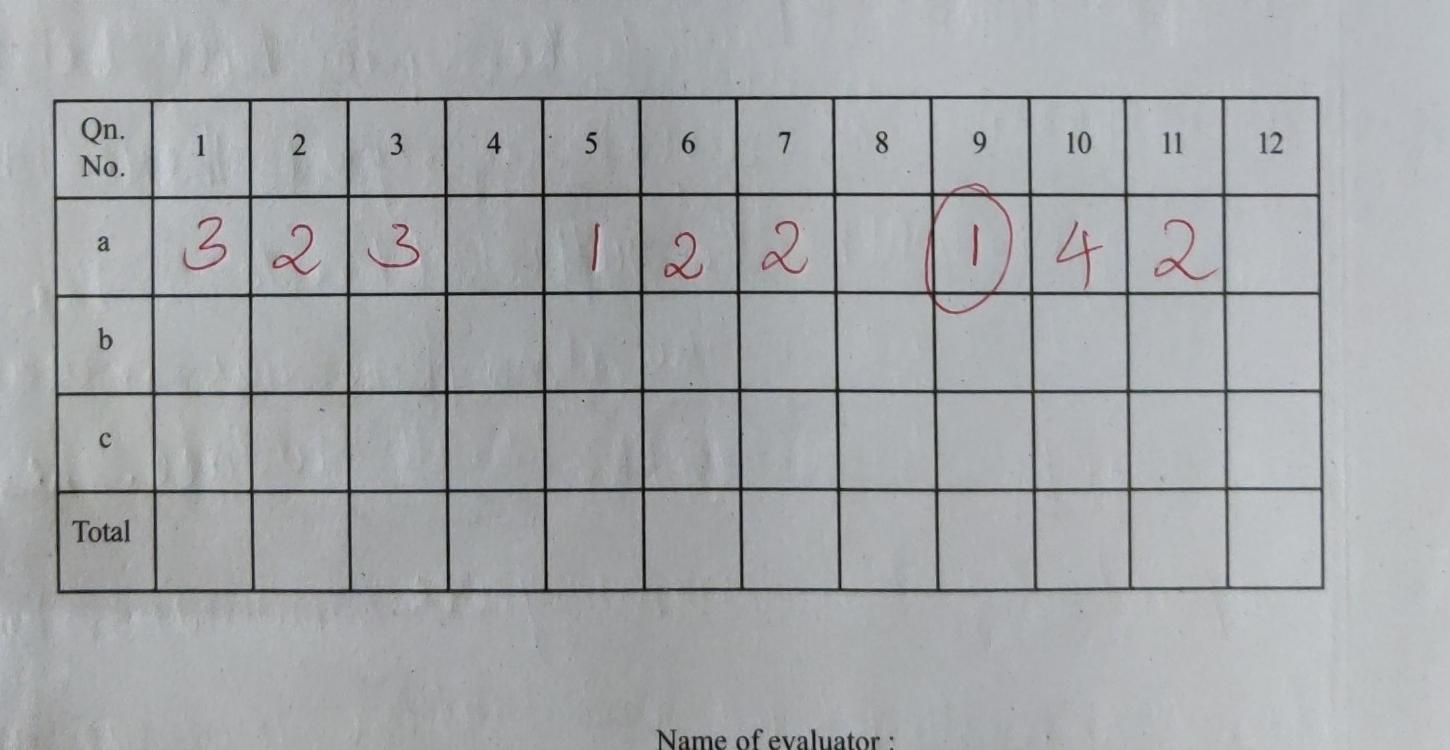 Qn. No. 1 2 3 4 5 6 7 8 9 10 11 12
a 3 2 3 1 2 2 1 4 2
b
c
Total
Name of evaluator :